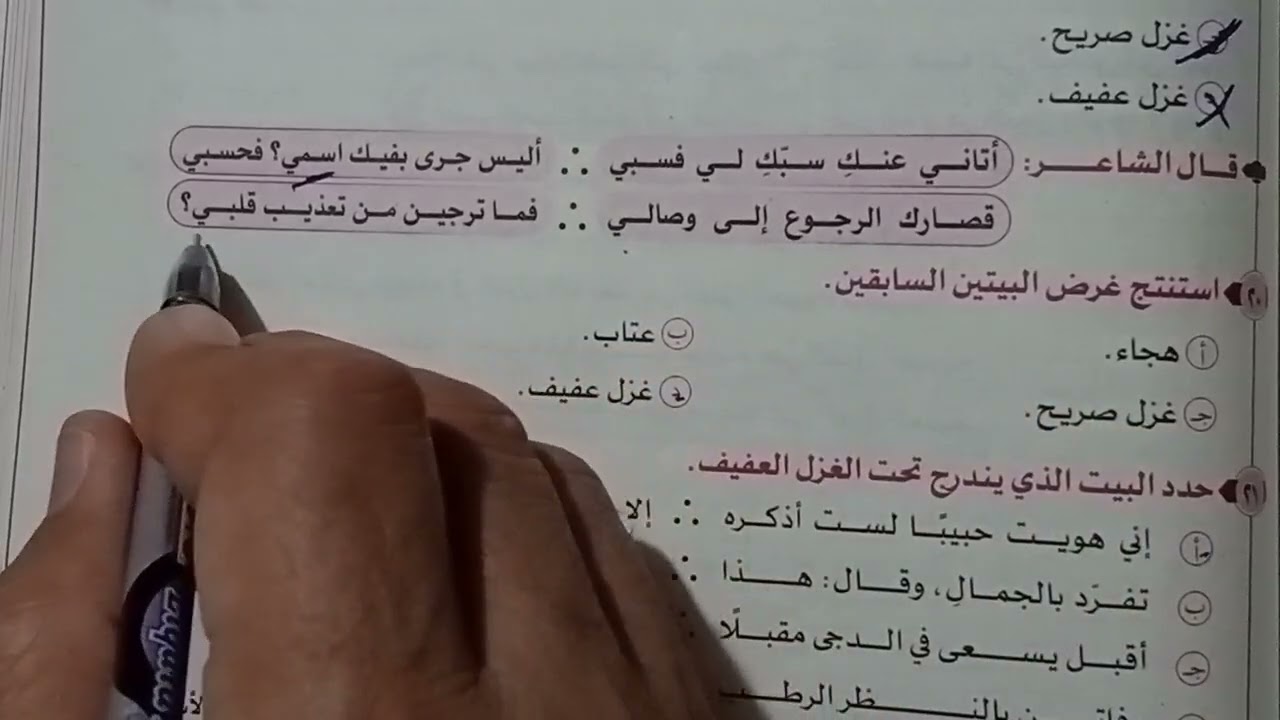 جـ غزل صريح.
د غزل عفيف.
قال الشاعر: أتاني عنكِ سبّكِ لي فسبي ∴ أليس جرى بفيك اسمي؟ فحسبي
قصارك الرجوع إلى وصالي ∴ فما ترجين من تعذيب قلبي؟
٢٠ استنتج غرض البيتين السابقين.
أ هجاء. ب عتاب.
جـ غزل صريح. د غزل عفيف.
٢١ حدد البيت الذي يندرج تحت الغزل العفيف.
أ إني هويت حبيبًا لست أذكره ∴ إلا
ب تفرّد بالجمالِ، وقال: هذا ∴
جـ أقبل يسعى في الدجى مقبلًا ∴
بالنظر الرطب